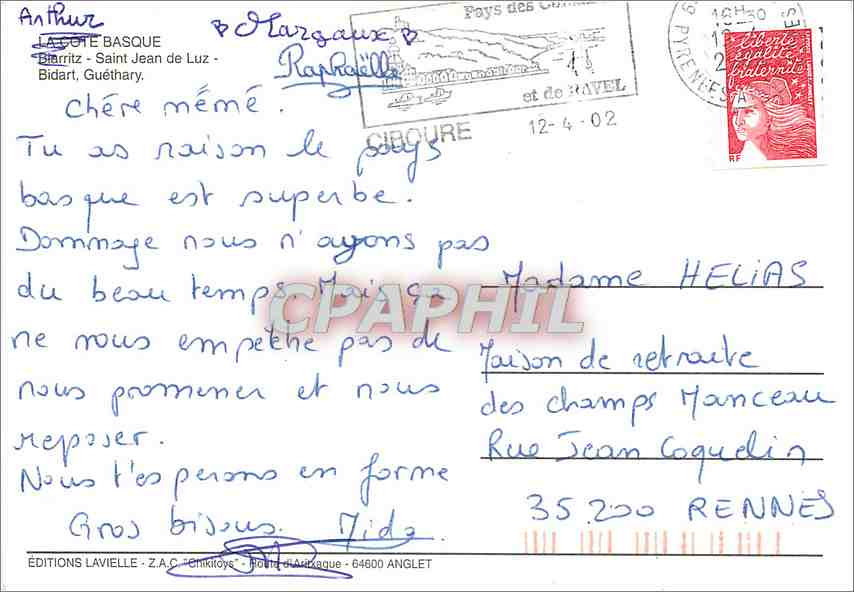 Arthur
Margaux
Raphaëlle
LA COTE BASQUE
Biarritz - Saint Jean de Luz -
Bidart, Guéthary.
Pays des
et de RAVEL
CIBOURE
12-4-02
16H 30
PYRENEES
liberté
égalité
fraternité
RF
Chére mémé.
Tu as raison le pays
basque est superbe.
Dommage nous n'ayons pas
du beau temps. Mais ça
ne nous empêche pas de
nous promener et nous
reposer.
Nous t'esperons en forme
Gros bisous.
Madame HELIAS
Maison de retraite
des champs Manceau
Rue Jean Coquelin
35200 RENNES
CPAPHIL
ÉDITIONS LAVIELLE - Z.A.C. "Chikitoys" - Route d'Aritxague - 64600 ANGLET